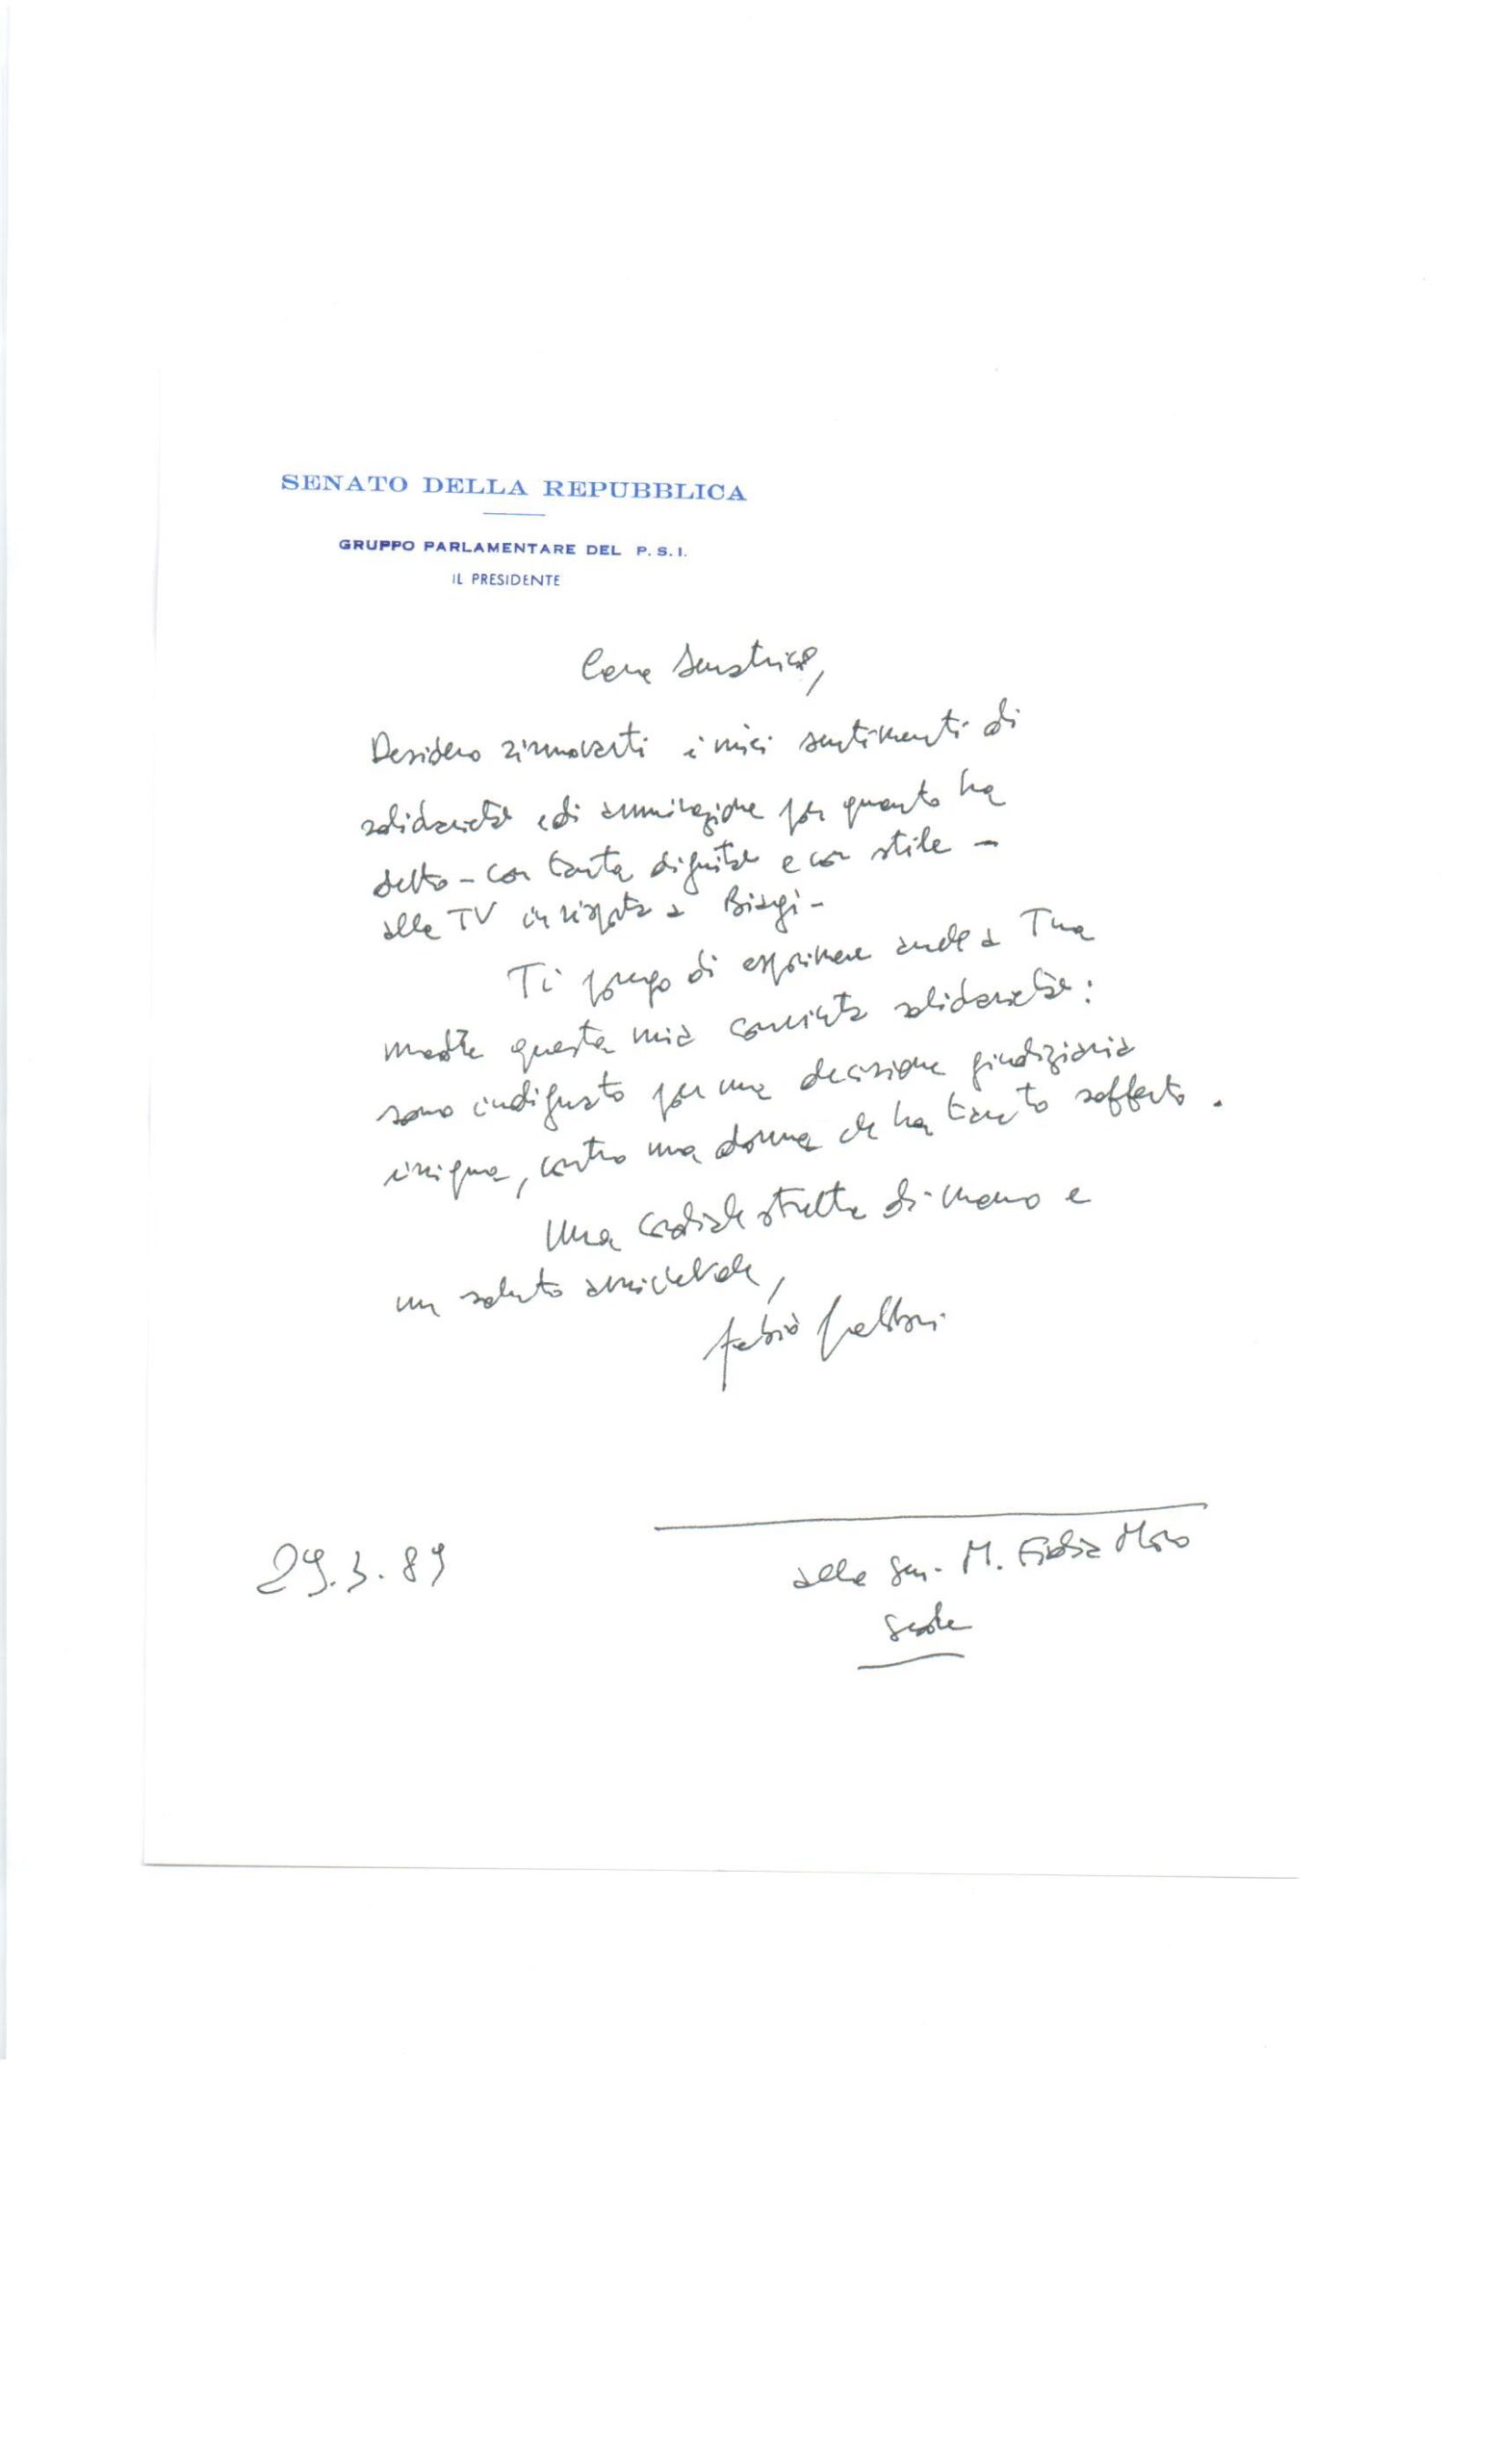 SENATO DELLA REPUBBLICA
GRUPPO PARLAMENTARE DEL P.S.I.
IL PRESIDENTE
Cara Senatrice,
Desidero rinnovarti i miei sentimenti di
solidarietà e di ammirazione per quanto ha
detto - con tanta dignità e con stile -
alla TV in risposta a Biagi -
Ti prego di esprimere anche a Tua
madre questa mia convinta solidarietà:
sono indignato per una decisione giudiziaria
iniqua, contro una donna che ha tanto sofferto.
Una cordiale stretta di mano e
un saluto amichevole,
Fabio Fabbri
29.3.89
alla Sen. M. Fida Moro
Sede